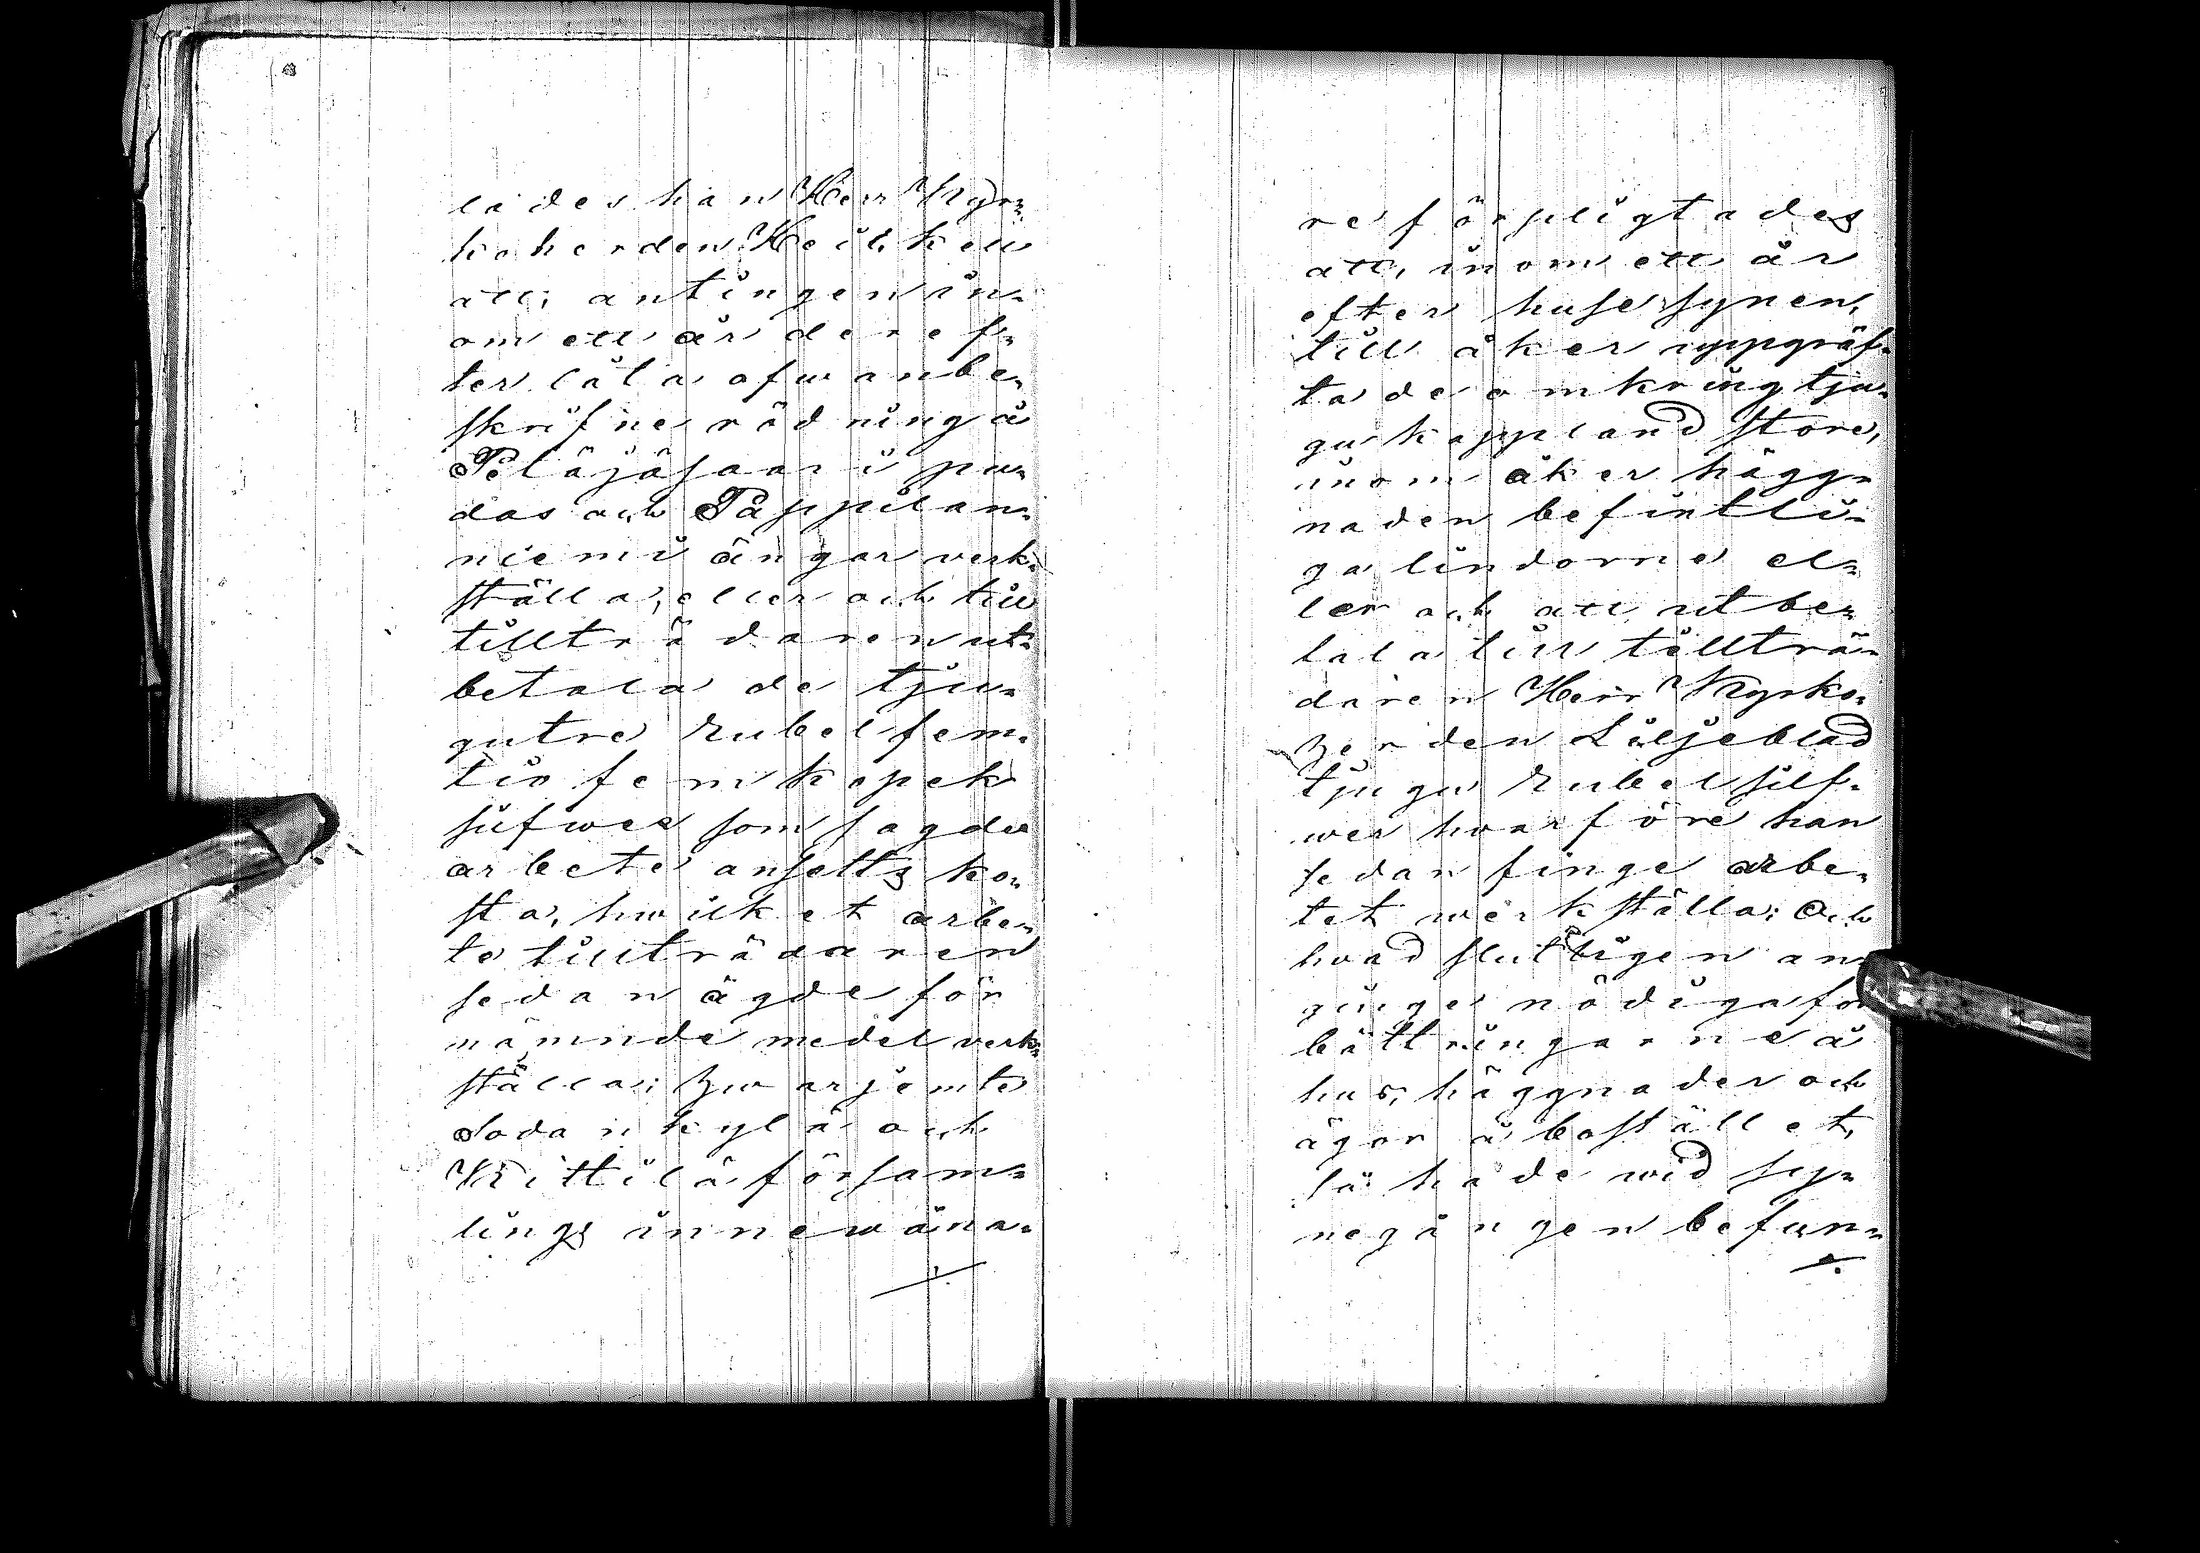 lades han Herr Kyr=
koherden Heikell
att, antingen in=
om ett år deref=
ter låta ofwanbe=
skrifne rödning å
Petäjäsaari pu=
das och Pappilan=
niemi ängar verk=
ställa, eller och till
tillträdaren ut=
betala de tju=
gutre rubel fem=
tio fem kopek
silfwer som sagde
arbete ansetts ko=
sta, hwilket arbe=
te tillträdaren
sedan ägde för
nämnde medel verk=
ställa; hwarjemte
Sodankylä och
Kittilä försam=
lings innewåna=
./.
re förpligtades
att, inom ett år
efter husesynen,
till åker uppgräf=
ta de omkring tju=
gu kappland store,
inom åker hägg=
naden befintli=
ga lindorne el=
ler och att utbe=
tala till tillträ=
daren Herr Kyrko=
herden Liljeblad
tjugu rubel silf=
wer hvarföre han
sedan finge arbe=
tet werkställa; Och
hvad slutligen an=
ginge nödiga för
bättringarne å
hus, häggnader och
ägor å bostället,
så hade wid sy=
negången befun=
./.